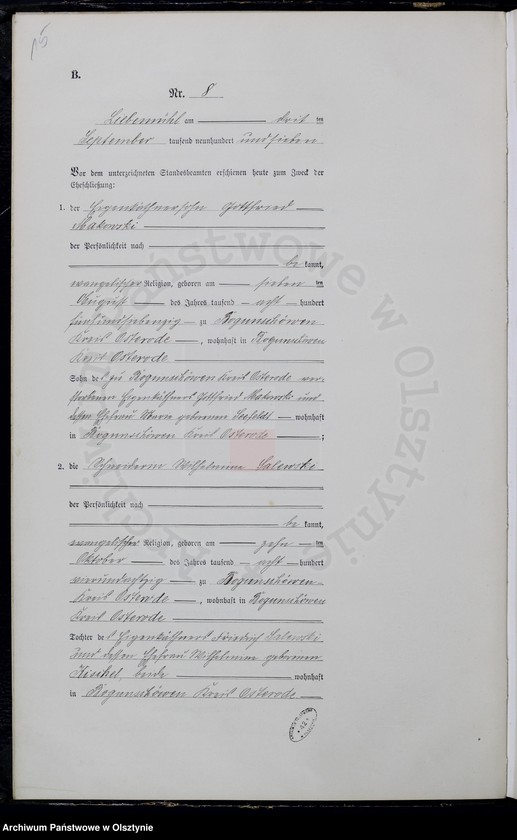 15
B.
Nr. 8
Liebemühl am dritten
September tausend neunhundert und sieben
Vor dem unterzeichneten Standesbeamten erschienen heute zum Zweck der
Eheschließung:
1. der Eigenkäthnersohn Gottfried
Makowski
der Persönlichkeit nach
be kannt,
evangelischer Religion, geboren am sieben ten
August des Jahres tausend acht hundert
fünfundsiebenzig zu Bogunschöwen
Kreis Osterode, wohnhaft in Bogunschöwen
Kreis Osterode
Sohn des zu Bogunschöwen Kreis Osterode ver-
storbenen Eigenkäthners Gottfried Makowski und
dessen Ehefrau geborenen wohnhaft
in Bogunschöwen Kreis Osterode;
2. die Schneiderin Wilhelmine Salewski
der Persönlichkeit nach
be kannt,
evangelischer Religion, geboren am zehn ten
Oktober des Jahres tausend acht hundert
vierundachtzig zu Bogunschöwen
Kreis Osterode, wohnhaft in Bogunschöwen
Kreis Osterode
Tochter des Eigenkäthners Friedrich Salewski
und dessen Ehefrau Wilhelmine geborenen
beide wohnhaft
in Bogunschöwen Kreis Osterode
Archiwum Państwowe w Olsztynie